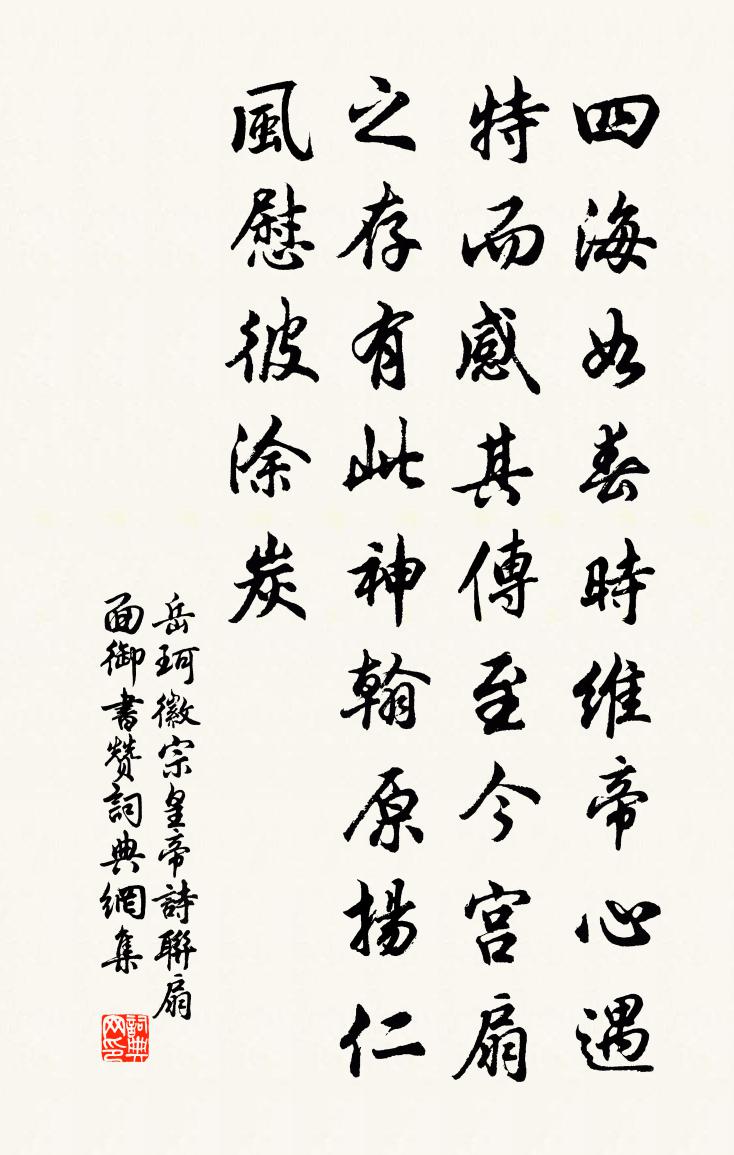 四海如春時維帝心遇
特而感其傳至今宫扇
之存有此神翰原揚仁
風慰彼涂炭
岳珂徽宗皇帝詩聯扇
面御書赞詞典網集
詞典
网印